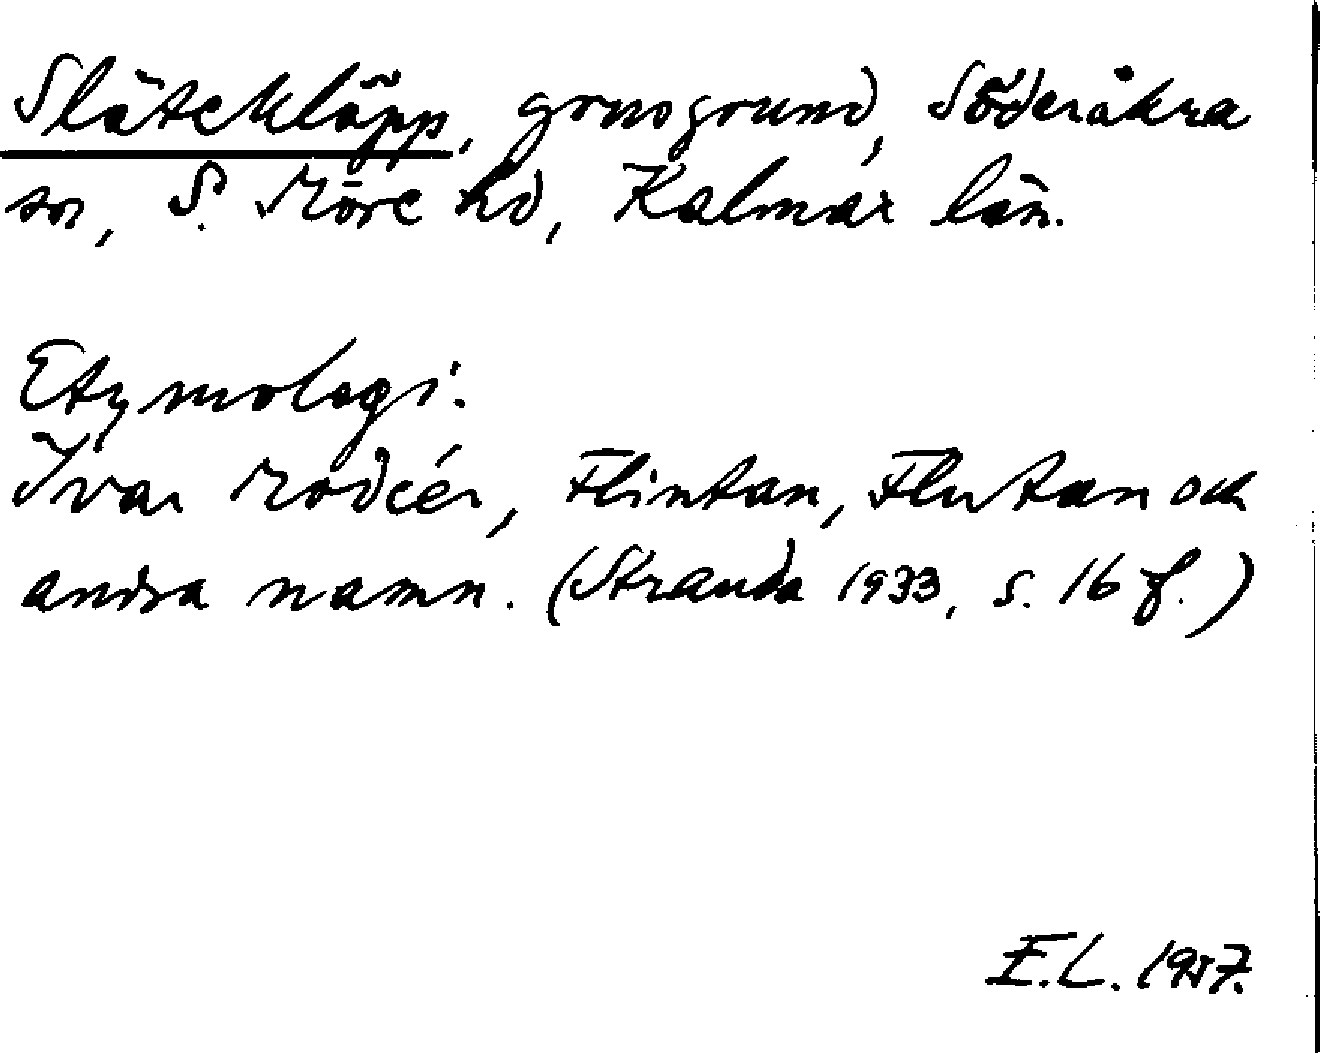 Släteklöpp, grusgrund, Söderåkra
sn, S. Möre hd, Kalmar län.
Etymologi:
Ivar Modéer, Flintan, Flutan och
andra namn. (Stranda 1933, s. 16 f.)
E.L. 1957.